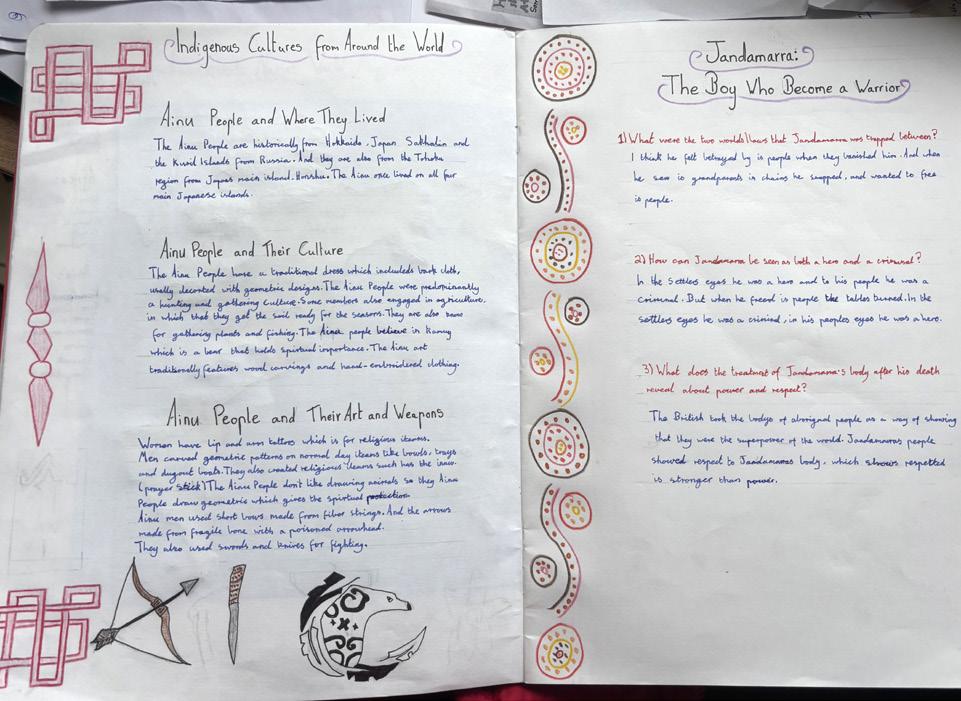 Indigenous Cultures from Around the World
Ainu People and Where They Lived
The Ainu People are historically from Hokkaido, Japan Sakhalin and
the Kuril Islands from Russia. And they are also from the Tohoku
region from Japas main island. Honshu. The Ainu once lived on all four
main Japanese islands.
Ainu People and Their Culture
The Ainu People have a traditional dress which includeds bark cloth,
usally decorted with geometric designs. The Ainu People were predominantly
a hunting and gathering Culture. Some members also engaged in agriculture.
in which that they got the soil ready for the seasons. They are also
for gathering plants and fishing. The Ainu people believe in Kamuy
which is a bear that holds spiritual importance. The Ainu art
traditionally features wood carvings and hand-embroidered clothing.
Ainu People and Their Art and Weapons
Women have lip and arm tattoos which is for religious
Men carved geometric patterns on normal day items like bowls, trays
and dugout boats. They also created religious items such has the inau.
(prayer stick) The Ainu People don't like drawing animals so they Ainu
People draw geometric which gives the spiritual protection
Ainu men used short bows made from fiber strings. And the arrows
made from fragile bone with a poisoned arrowhead.
They also used swords and knives for fighting.
Jandamarra:
The Boy Who Become a Warrior
1) What were the two worlds\laws that Jandamarra was trapped between?
I think he felt betrayed by is people when they vanished him. And when
he saw is grandparents in chains he snapped, and wanted to free
is people.
2) How can Jandamarra be seen as both a hero and a criminal?
In the Settlers eyes he was a hero and to his people he was a
criminal. But when he freed is people the tables turned. In the
settlers eyes he was a criminal, in his peoples eyes he was a hero.
3) What does the treatment of Jandamarra's body after his death
reveal about power and respect?
The British took the bodys of aboriginal people as a way of showing
that they were the superpower of the world. Jandamaras people
showed respect to Jandamaras body, which shows
is stronger than power.